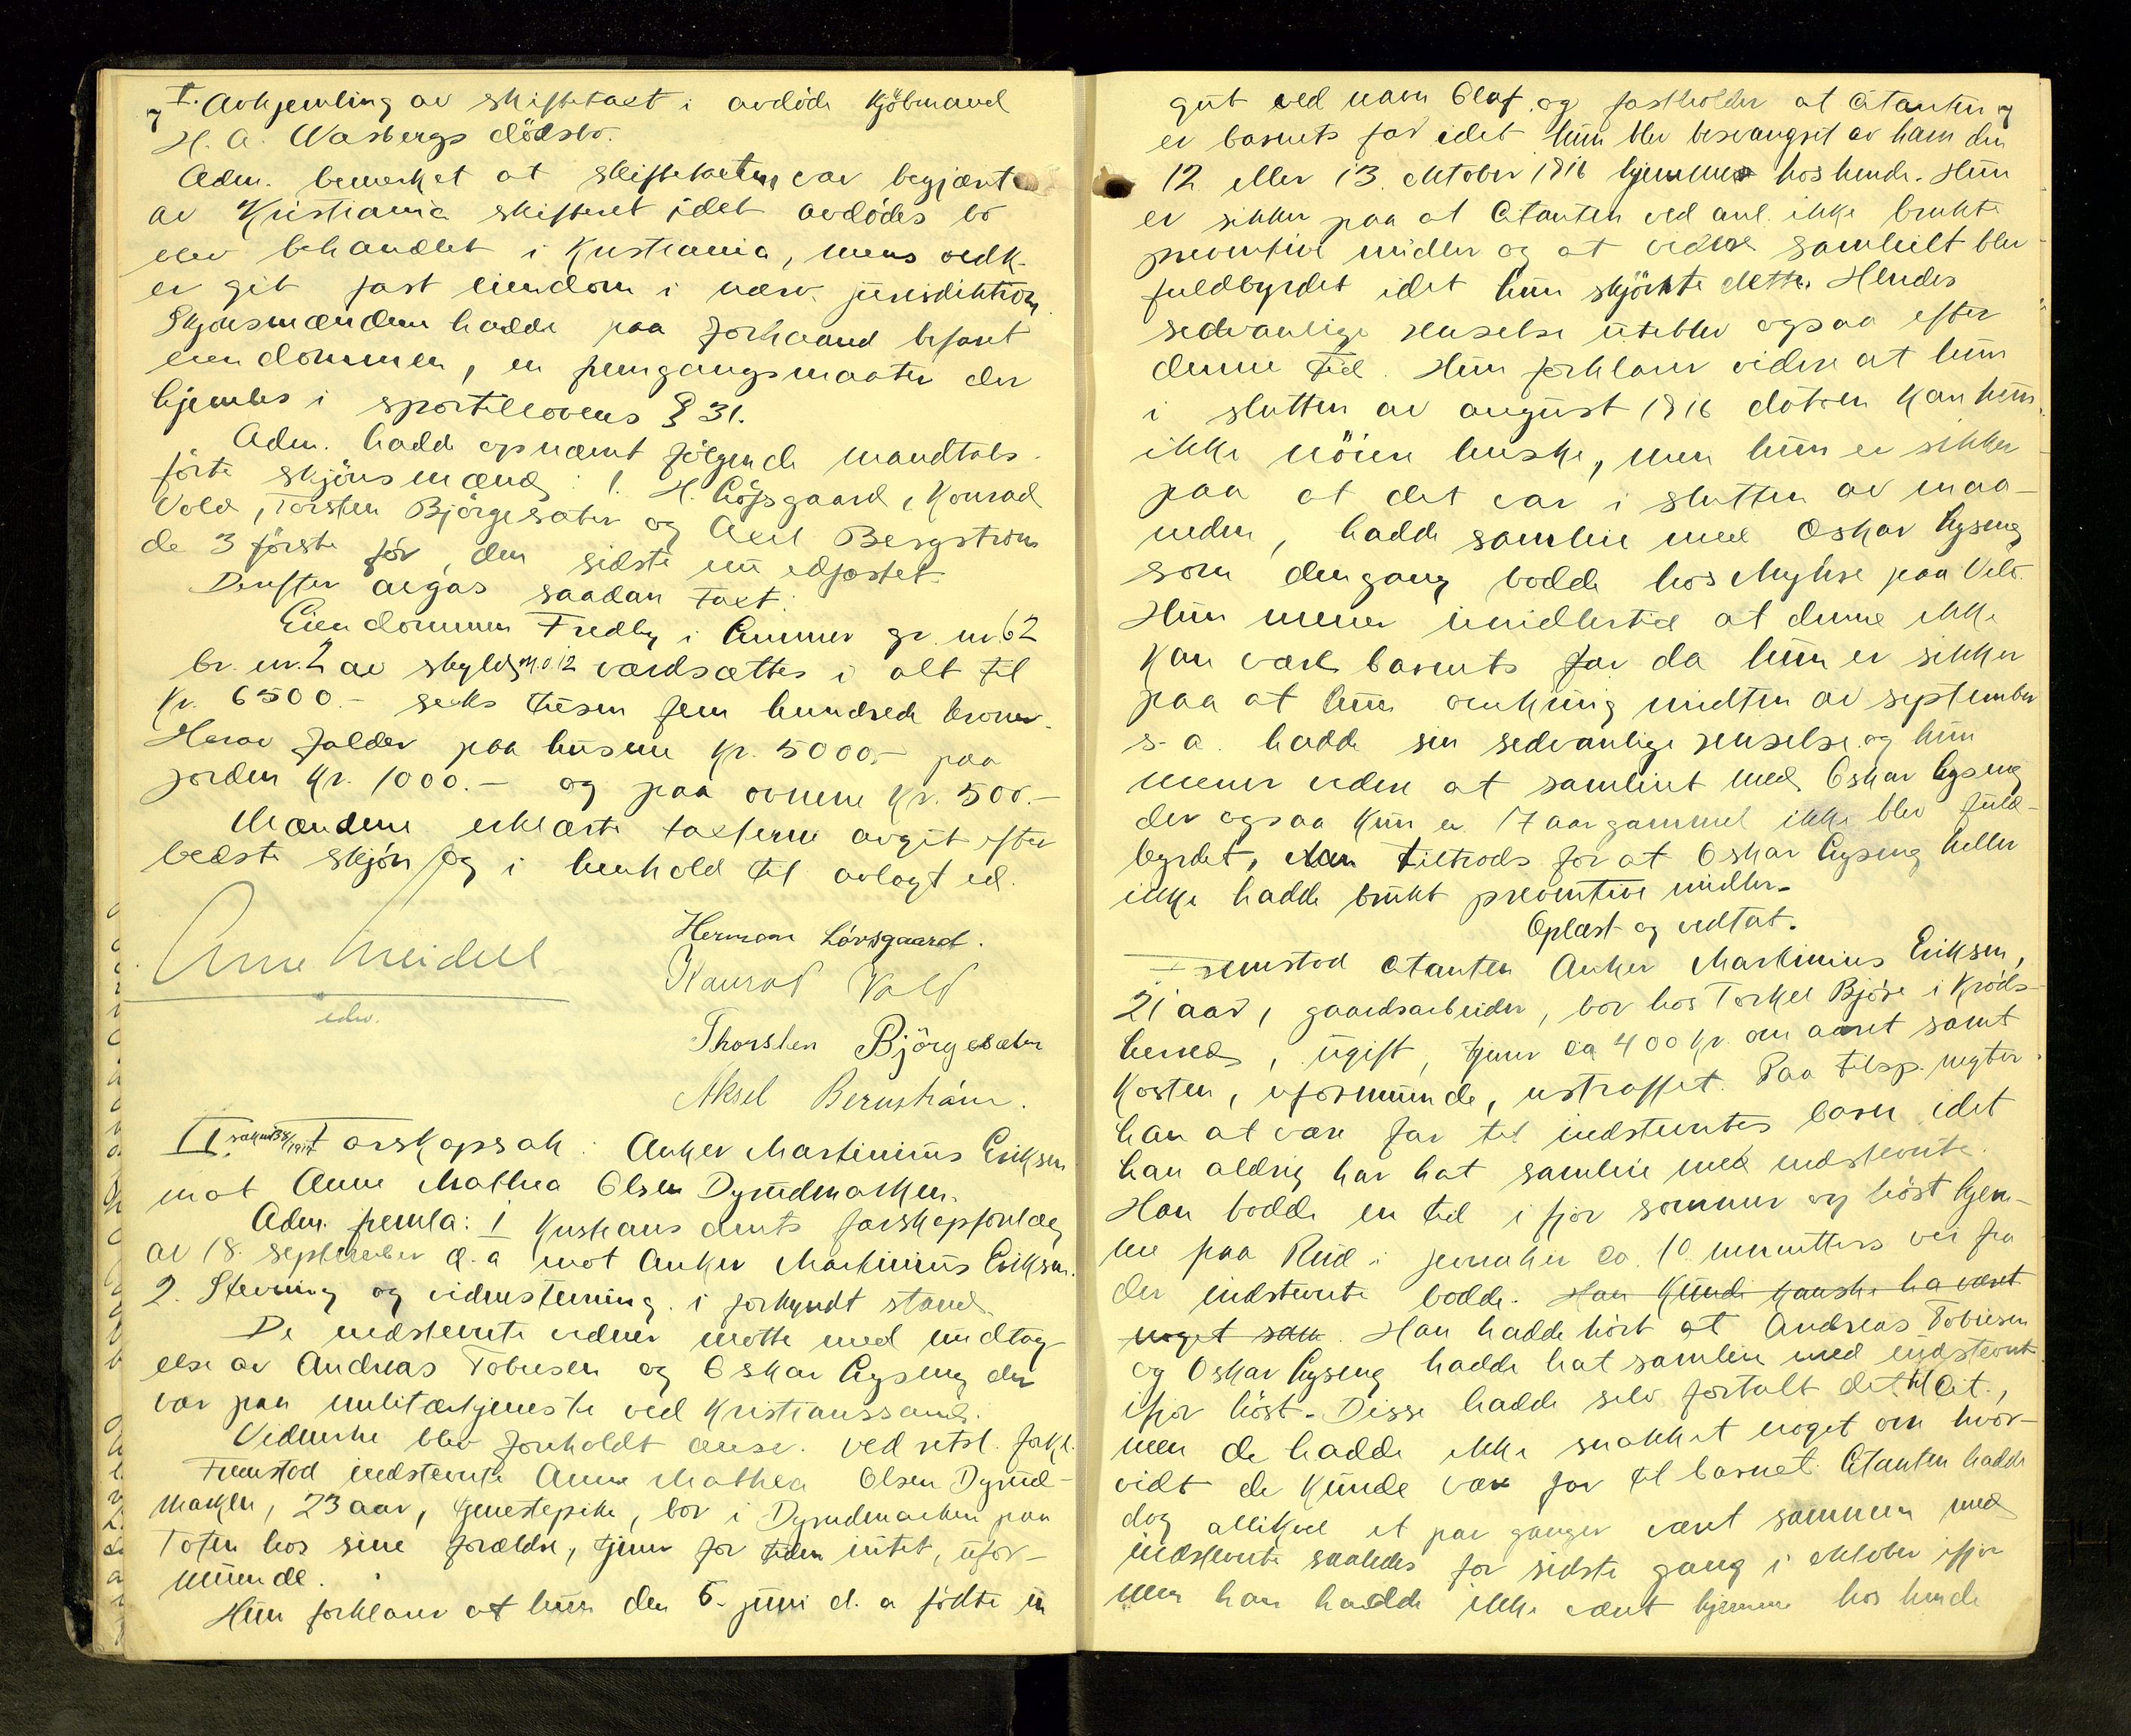 I. Avhjemling av skiftetaxt i avdöde Kjöbmand
H. A. Wasbergs dödsbo.
Adm. bemerket at skiftetaxten var begjært
av Kristiania skifteret idet avdödes bo
blev behandlet i Kristiania, mens vedk.
er git fast eiendom i nærv. jurisdiktion.
Skjönsmændene hadde paa forhaand befaret
eiendommen, en fremgangsmaate der
hjemles i sportellovens § 31.
Adm. hadde opnævnt fölgende mandtals-
förte skjönsmænd: 1. H. Lövsgaard, Konrad
Vold, Torsten Björgesæter og Axel Bergström
de 3 förste för, den sidste nu edfæstet.
Derefter avgas saadan taxt:
Eiendommen Fredly i gr. nr. 62
br. nr. 2 av skyld m. 0.12 værdsættes i alt til
Kr. 6500.- seks tusen fem hundrede kroner.
Herav falder paa husene kr. 5000.- paa
jorden kr. 1000.- og paa ovnene kr. 500.-
Mændene erklærte taxterne avgit efter
bedste skjön og i henhold til avlagt ed.
Arne Meidell
edv.
Herman Lövsgaard.
Konrad Vold
Thorsten Björgesæter
Aksel Bernström.
II. sak nr 38/1917 Farskapssak: Anker Martinius Eriksen
mot Anne Mathea Olsen Dyrudmarken.
Adm. fremla: 1 Kristians amts farskapsforelæg
av 18. september d. a mot Anker Martinius Eriksen.
2. Stevning og vidnestevning i forkyndt stand.
De indstevnte vidner mötte med undtag-
else av Andreas Tobiesen og Oskar Lyseng der
var paa militærtjeneste ved Kristianssand.
Vidnerne blev foreholdt ansv. ved retsl. forkl.
Fremstod indstevnte Anne Mathea Olsen Dyrud-
marken, 23 aar, tjenestepike, bor i Dyrudmarken paa
Toten hos sine forældre, tjener for tiden intet, ufor-
muende.
Hun forklarer at hun den 5. juni d. a födte en
gut ved navn Olaf og fastholder at citanten
er barnets far idet hun blev besvangret av ham den
12 eller 13. oktober 1916 hjemme hos hende. Hun
er sikker paa at citanten ved anl. ikke brukte
preventive midler og at videre samleiet blev
fuldbyrdet idet hun skjönte dette. Hendes
sedvanlige renselse uteblev ogsaa efter
denne tid. Hun forklarer videre at hun
i slutten av august 1916 datoen kan hun
ikke nöiere huske, men hun er sikker
paa at det var i slutten av maa-
neden, hadde samleie med Oskar Lyseng
som dengang bodde hos Myhre paa Velt.
Hun mener imidlertid at denne ikke
kan være barnets far da hun er sikker
paa at hun omkring midten av september
s. a. hadde sin sedvanlige renselse og hun
mener videre at samleiet med Oskar Lyseng
der ogsaa kun er 17 aar gammel ikke blev fuld-
byrdet, tiltrods for at Oskar Lyseng heller
ikke hadde brukt preventive midler.
Oplæst og vedtat.
Fremstod citanten Anker Martinius Eriksen,
21 aar, gaardsarbeider, bor hos Torkel Björe i Kröds-
herred, ugift, tjener ca 400 kr. om aaret samt
kosten, uformuende, ustraffet. Paa tilsp. negter
han at være far til indstevntes barn idet
han aldrig har hat samleie med indstevnte.
Han bodde en tid i fjor sommer og höst hjem-
me paa Rud i ca. 10 minutters vei fra
der indstevnte bodde. Han kunde kanske ha været
noget sam. Han hadde hört at Andreas Tobiesen
og Oskar Lyseng hadde hat samleie med indstevnte
ifjor höst. Disse hadde selv fortalt det til cit.,
men de hadde ikke snakket noget om hvor-
vidt de kunde være far til barnet. Citanten hadde
dog allikevel et par ganger været sammen med
indstevnte saaledes for sidste gang i oktober ifjor
men han hadde ikke været hjemme hos hende